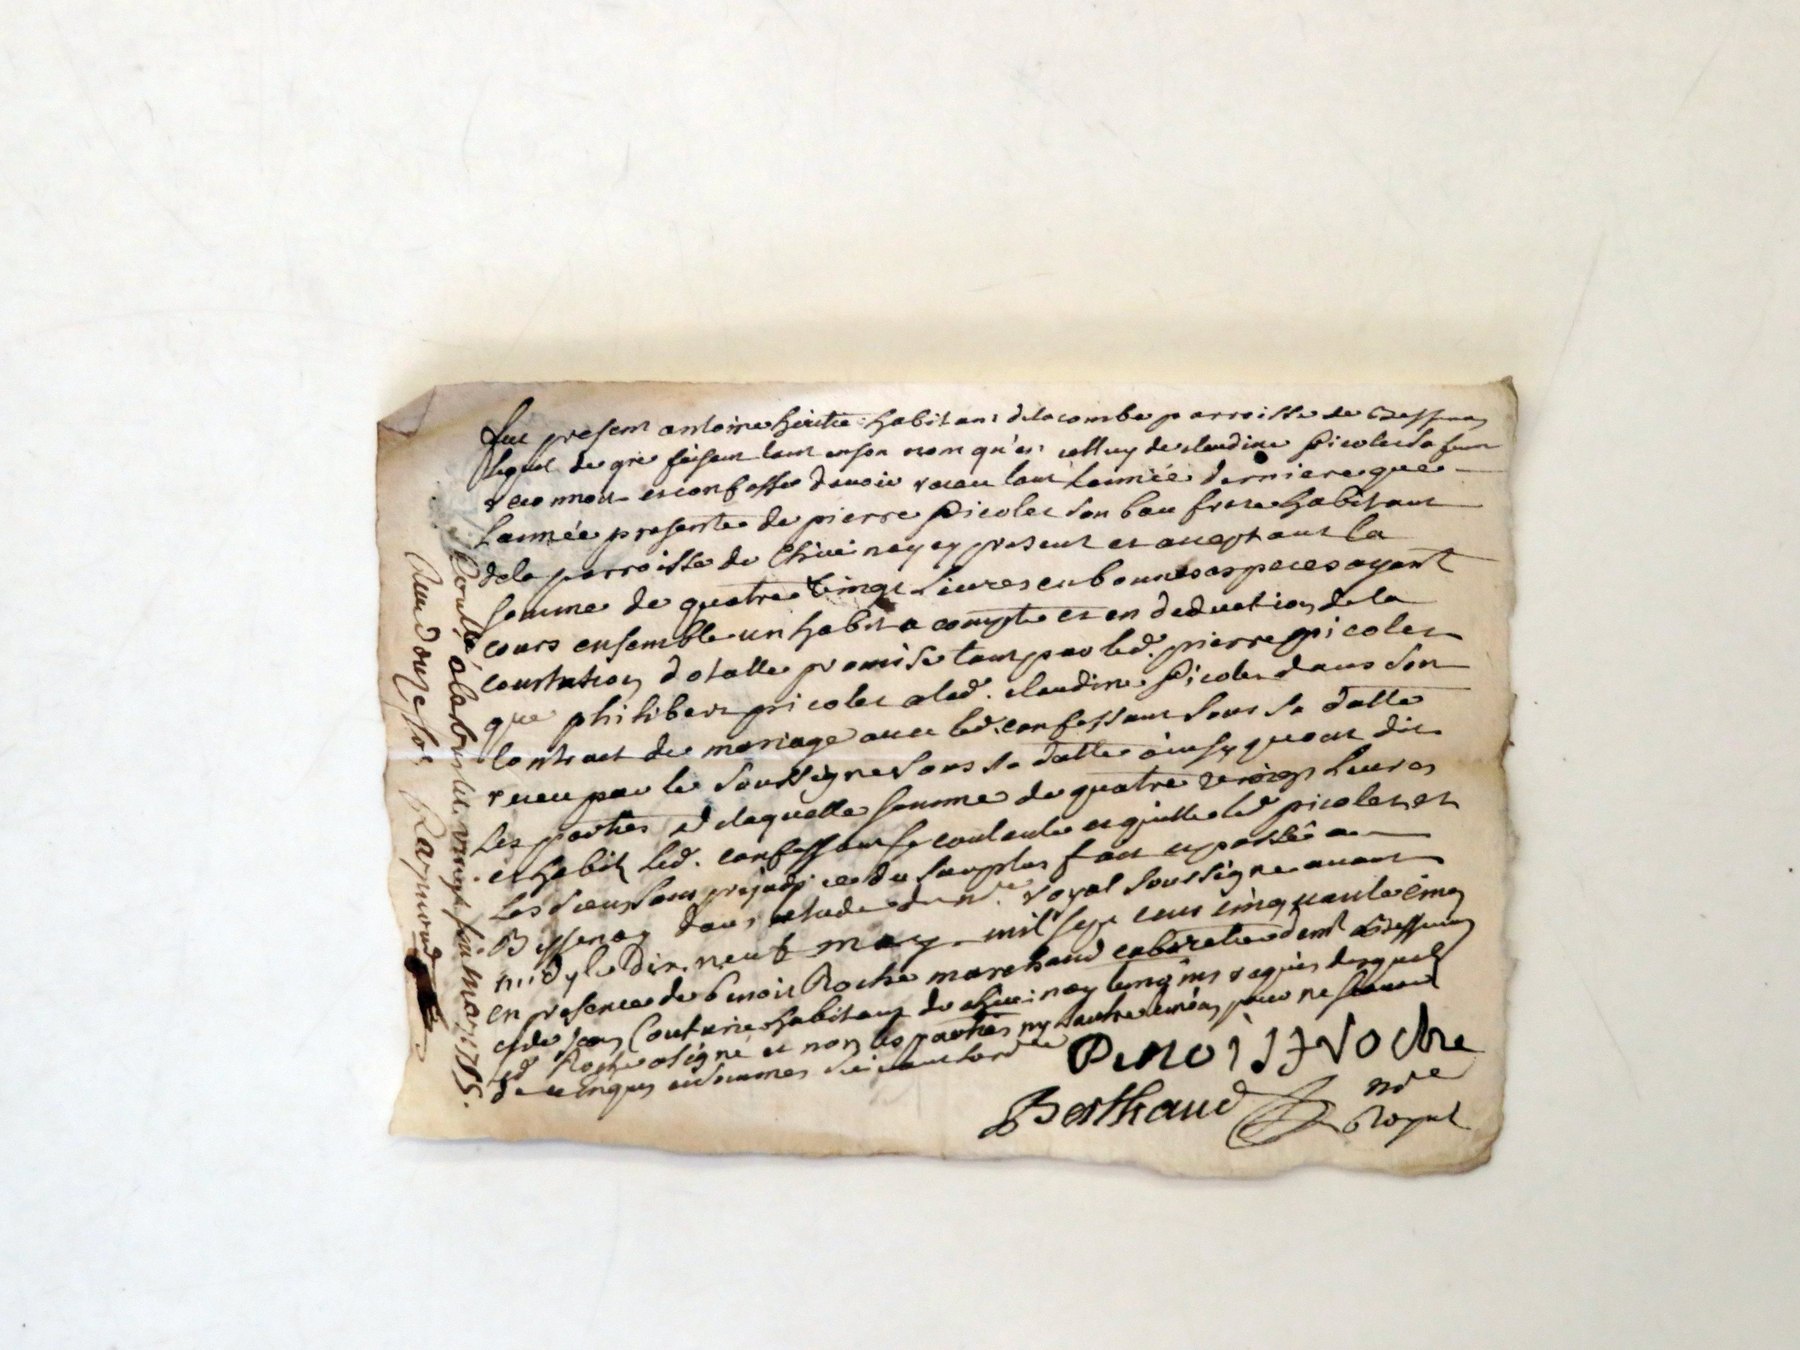 fut present antoine habitant de la combe parroisse de Bessenay
lequel de gré faisant tant en son nom qu'en celluy de claudine Picolet sa fem
reconnoit et confesse davoir receu tant Lannée derniere que
Lannée presente de pierre Picolet son beau frere habitant
de la parroisse de Chivinay cy present et acceptant la
somme de quatre vingt Livres en bonnes especes ayant
cours ensemble un habit a compte et en deduction de la
constitution dotalle promise tant par led. pierre picolet
que philibert picolet a lad. claudine Picolet dans son
Contract de mariage avec led. confessant sous sa datte
receu par le soussigné sous sa datte ainsy quont dit
les parties de laquelle somme de quatre vingt Livres
et habit led. confessant se contente et quitte led picolet et
les siens sans prejudice du surplus fait et passé a
Bessenay dans etude du nre. royal soussigné avant
midy le dix neuf may mil sept cens cinquante cinq
en presence de benoit Roche marchand cabaretier demt a Bessenay
et de jean habitant de chivinay temoins requis desquels
led Roche a signé et non les parties ny lautre temoin pour ne scavoir
de ce enquis et sommes suivant lordce
Benoist Roche
Berthaud nre
Royal
Controllé a le vingt six may 1755.
Receu douze sols Raymond